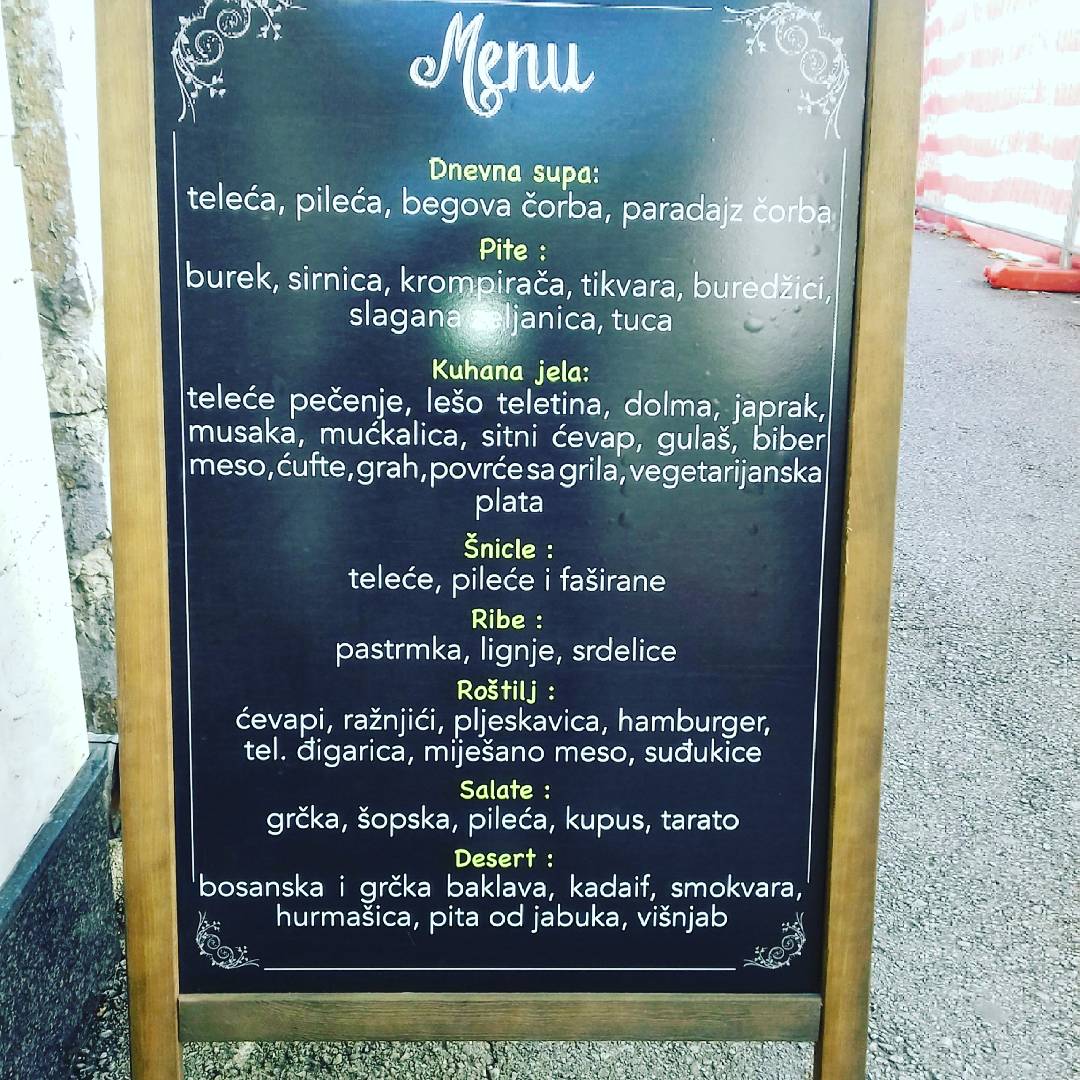 Menu
Dnevna supa:
teleća, pileća, begova čorba, paradajz čorba
Pite :
burek, sirnica, krompirača, tikvara, buredžici,
slagana zeljanica, tuca
Kuhana jela:
teleće pečenje, lešo teletina, dolma, japrak,
musaka, mućkalica, sitni ćevap, gulaš, biber
meso, ćufte, grah, povrće sa grila, vegetarijanska
plata
Šnicle :
teleće, pileće i faširane
Ribe :
pastrmka, lignje, srdelice
Roštilj :
ćevapi, ražnjići, pljeskavica, hamburger,
tel. đigarica, miješano meso, suđukice
Salate :
grčka, šopska, pileća, kupus, tarato
Desert :
bosanska i grčka baklava, kadaif, smokvara,
hurmašica, pita od jabuka, višnjab